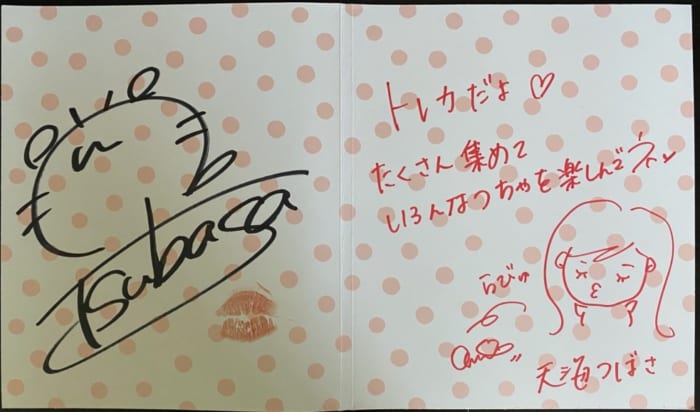 Tsubasa
トレカだよ♡
たくさん集めて
いろんなつちゃを楽しんでネッ
らびゅ
天海つばさ